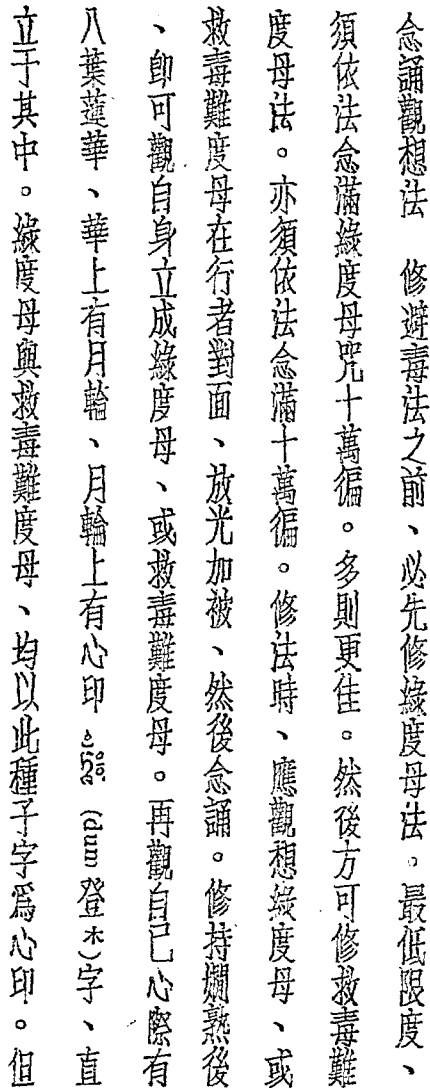 念誦觀想法　修避毒法之前、必先修綠度母法。最低限度、
須依法念滿綠度母咒十萬徧。多則更佳。然後方可修救毒難
度母法。亦須依法念滿十萬徧。修法時、應觀想綠度母、或
救毒難度母在行者對面、放光加被、然後念誦。修持嫻熟後
、卽可觀自身立成綠度母、或救毒難度母。再觀自己心際有
八葉蓮華、華上有月輪、月輪上有心印（dum登木）字、直
立于其中。綠度母與救毒難度母、均以此種子字爲心印。但